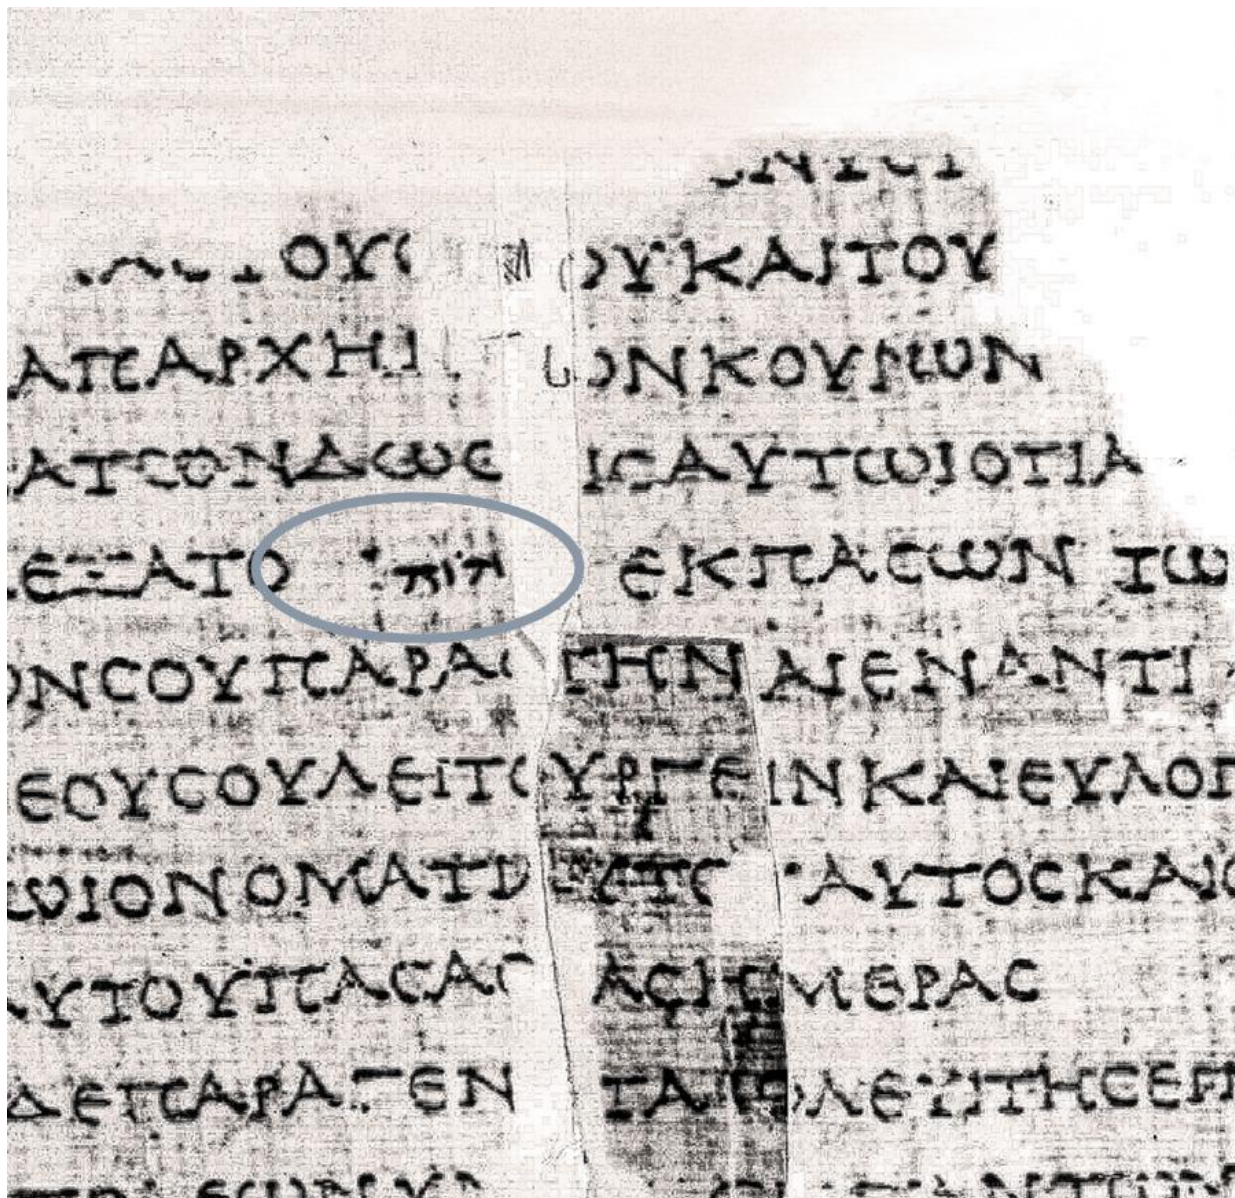 ΟΥϹ ΟΥΚΑΙΤΟΥ
ΑΠΑΡΧΗ ΩΝΚΟΥΡΩΝ
ΑΤΩΝΔΩϹΕ ΙϹΑΥΤΩΙΟΤΙΑ
ΕΞΑΤΟ יהוה ΕΚΠΑϹΩΝ ΤΩ
ΟΝϹΟΥΠΑΡΑϹ ΤΗΝΑΙΕΝΑΝΤΙ
ΕΟΥϹΟΥΛΕΙΤΟΥΡΓΕΙΝΚΑΙΕΥΛΟΓ
ΩΙΟΝΟΜΑΤΙ ΥΤΟ ΑΥΤΟϹΚΑΙΟ
ΥΤΟΥΠΑϹΑϹ ΑϹΗΜΕΡΑϹ
ΔΕΠΑΡΑΓΕΝ ΤΑΙΟΛΕΥΙΤΗϹΕΠ